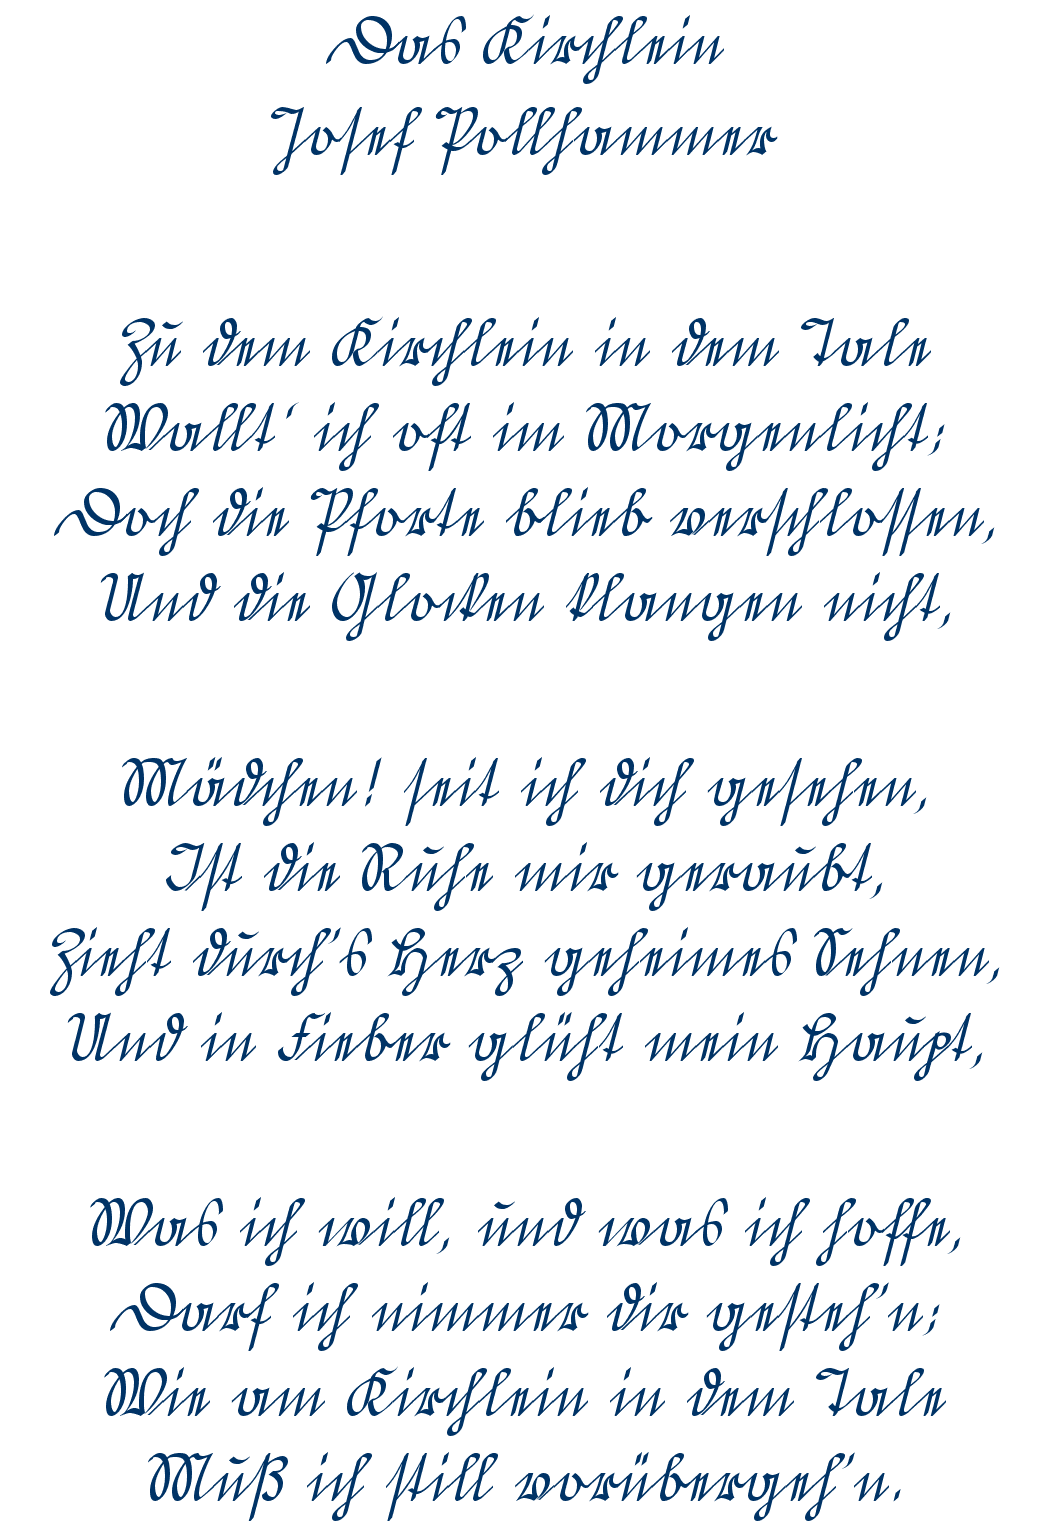 Das Kirchlein
Josef Pollhammer
Zu dem Kirchlein in dem Tale
Wallt' ich oft im Morgenlicht;
Doch die Pforte blieb verschlossen,
Und die Glocken klangen nicht,
Mädchen! seit ich dich gesehen,
Ist die Ruhe mir geraubt,
Zieht durch's Herz geheimes Sehnen,
Und in Fieber glüht mein Haupt,
Was ich will, und was ich hoffe,
Darf ich nimmer dir gesteh'n;
Wie am Kirchlein in dem Tale
Muß ich still vorübergeh'n.